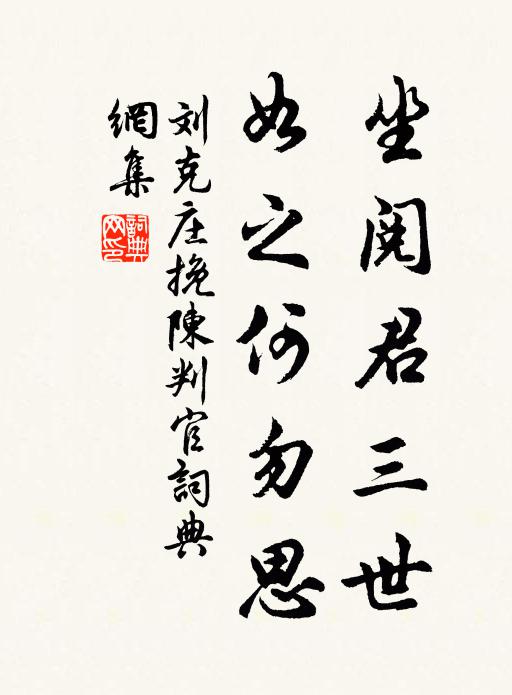 坐閱君三世
如之何勿思
刘克庄挽陳判官詞典
網集
詞典
网印